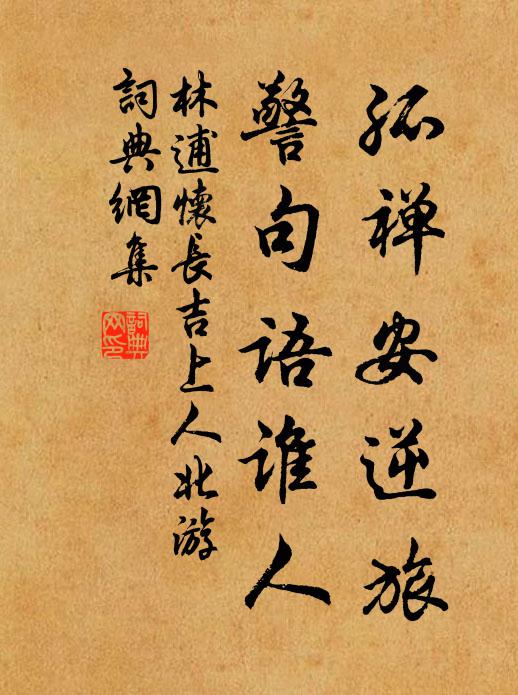 孤禅安逆旅
警句語谁人
林逋懷長吉上人北游
詞典網集
詞典網印